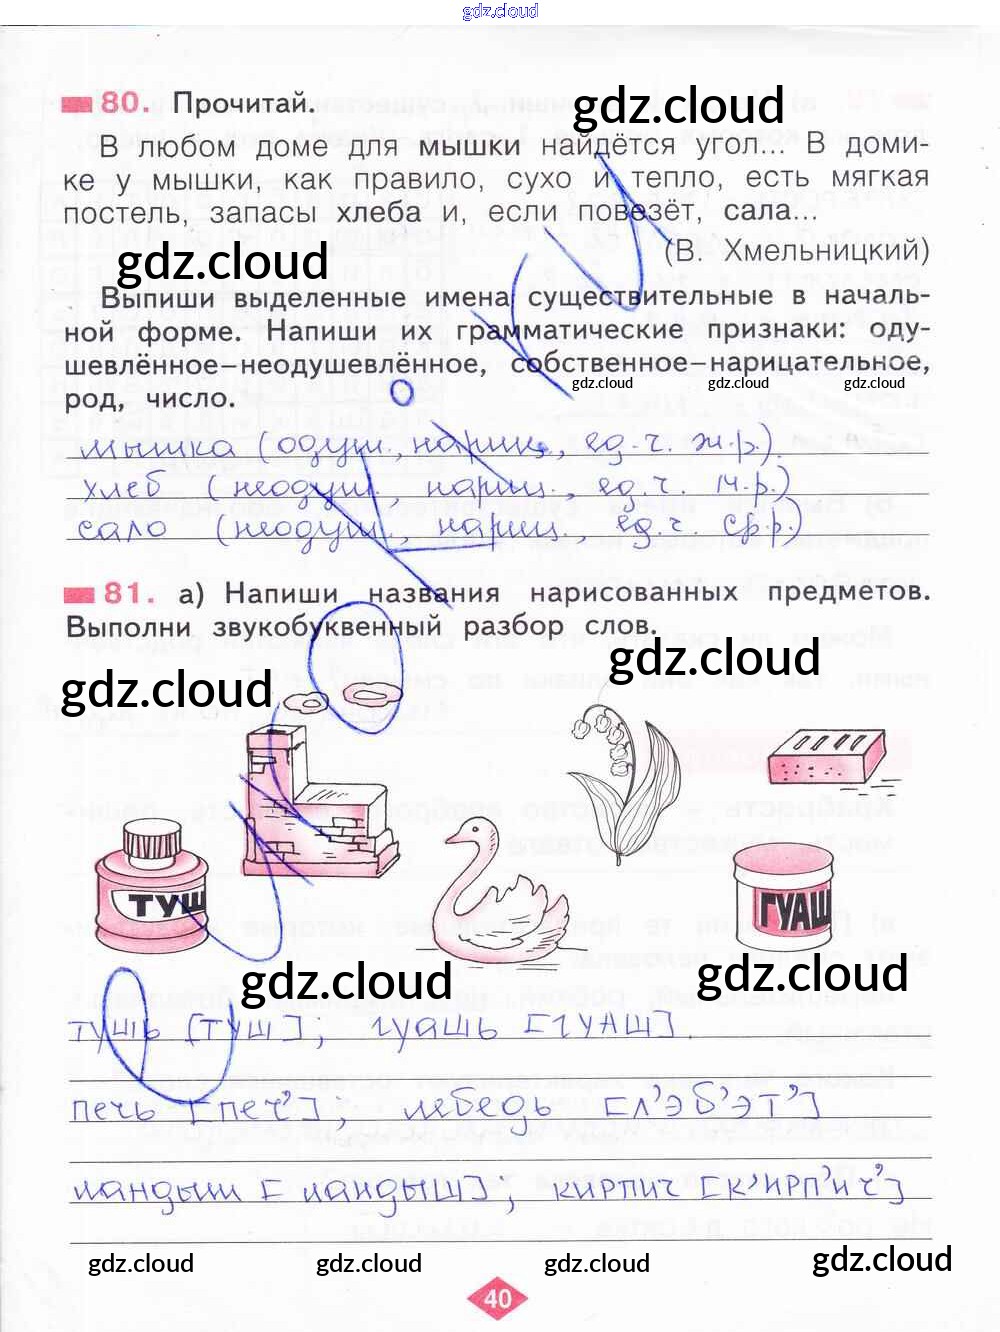 gdz.cloud
80. Прочитай.
gdz.cloud
В любом доме для мышки найдётся угол... В доми-
ке у мышки, как правило, сухо и тепло, есть мягкая
постель, запасы хлеба и, если повезёт, сала...
(В. Хмельницкий)
gdz.cloud
Выпиши выделенные имена существительные в началь-
ной форме. Напиши их грамматические признаки: оду-
шевлённое–неодушевлённое, собственное–нарицательное,
род, число.
gdz.cloud gdz.cloud gdz.cloud
мышка (одуш., нариц., ед.ч. ж.р.).
хлеб (неодуш., нариц., ед.ч. м.р.)
сало (неодуш., нариц., ед.ч ср.р.)
81. а) Напиши названия нарисованных предметов.
Выполни звукобуквенный разбор слов.
gdz.cloud
gdz.cloud
ТУШ
ГУАШ
gdz.cloud
gdz.cloud
тушь [ТУШ]; гуашь [ГУАШ].
печь [печ’]; лебедь [Л’ЭБ’ЭТ’]
ландыш [ландыш]; кирпич [К’ИРП’ИЧ’]
gdz.cloud gdz.cloud gdz.cloud gdz.cloud
40